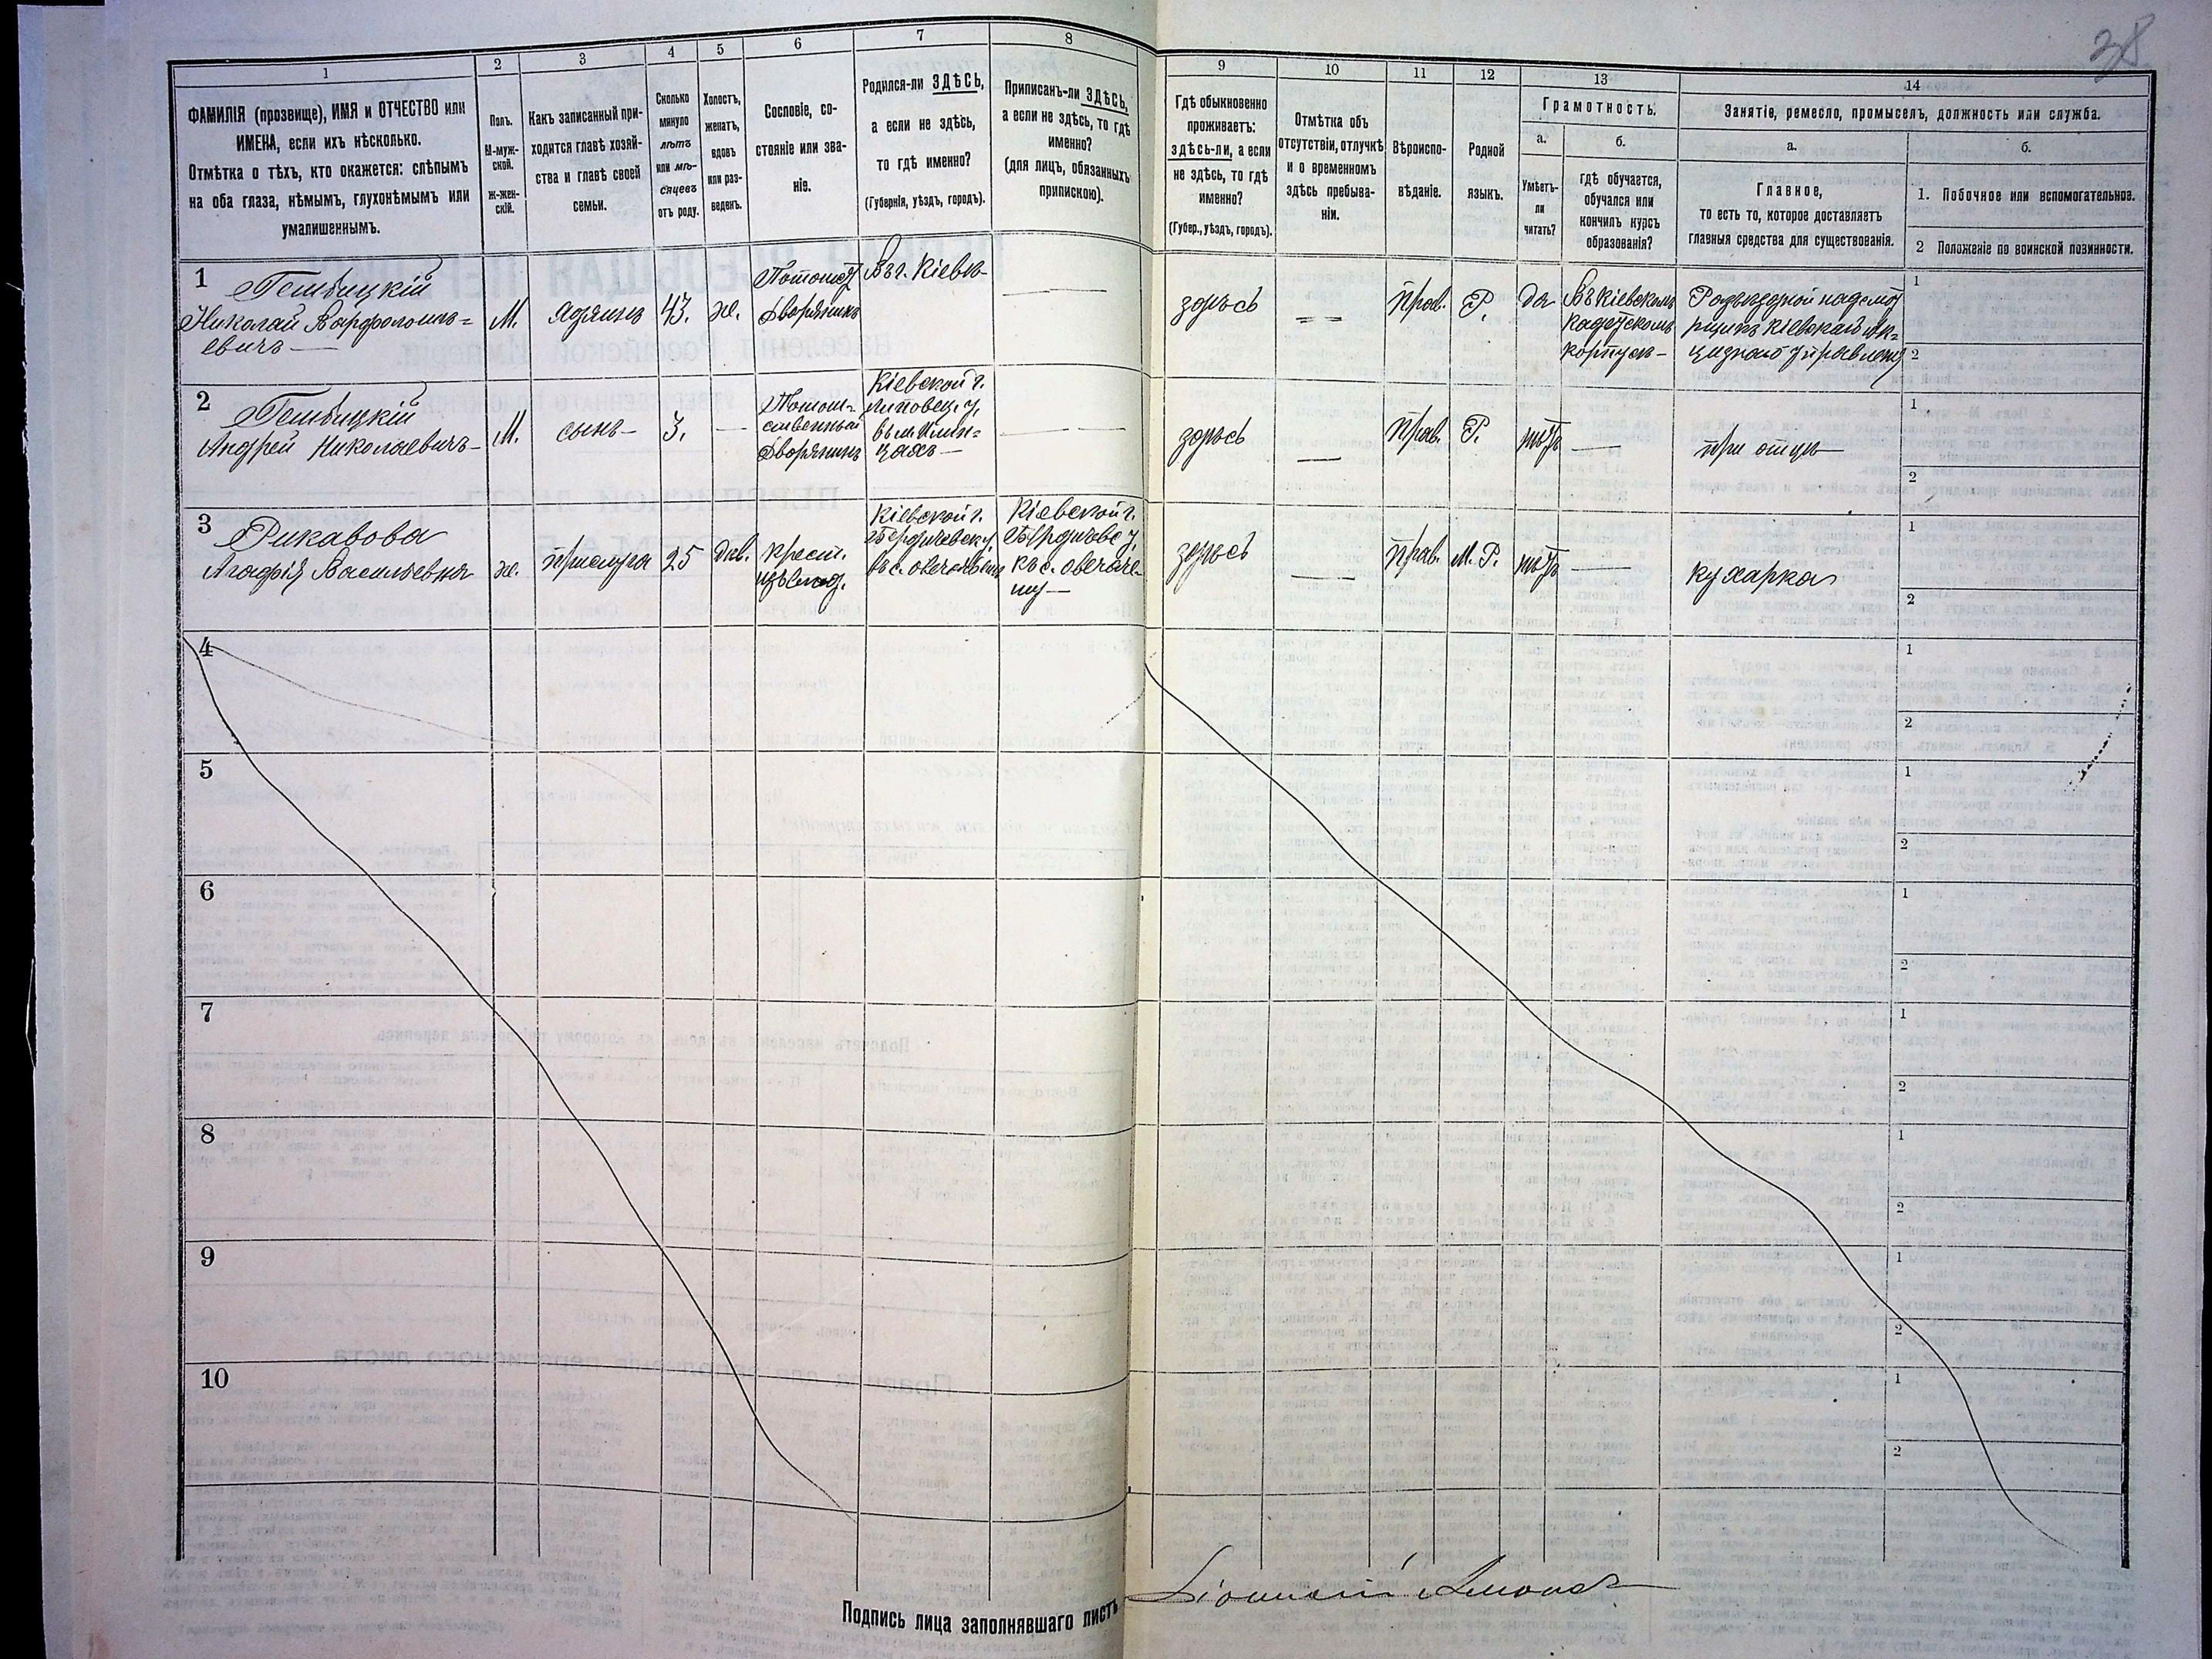 38
1
2
3
4
5
6
7
8
9
10
11
12
13
14
ФАМИЛІЯ (прозвище), ИМЯ и ОТЧЕСТВО или
ИМЕНА, если ихъ нѣсколько.
Отмѣтка о тѣхъ, кто окажется: слѣпымъ
на оба глаза, нѣмымъ, глухонѣмымъ или
умалишеннымъ.
Полъ.
М-муж-
ской.
Ж-жен-
скій.
Какъ записанный при-
ходится главѣ хозяй-
ства и главѣ своей
семьи.
Сколько
минуло
лѣтъ
или мѣ-
сяцевъ
отъ роду.
Холостъ,
женатъ,
вдовъ
или раз-
веденъ.
Сословіе, со-
стояніе или зва-
ніе.
Родился-ли ЗДѢСЬ,
а если не здѣсь,
то гдѣ именно?
(Губернія, уѣздъ, городъ).
Приписанъ-ли ЗДѢСЬ,
а если не здѣсь, то гдѣ
именно?
(для лицъ, обязанныхъ
припискою).
Гдѣ обыкновенно
проживаетъ:
здѣсь-ли, а если
не здѣсь, то гдѣ
именно?
(Губер., уѣздъ, городъ).
Отмѣтка объ
отсутствіи, отлучкѣ
и о временномъ
здѣсь пребыва-
ніи.
Вѣроиспо-
вѣданіе.
Родной
языкъ.
Грамотность.
а.
б.
Умѣетъ-
ли
читать?
гдѣ обучается,
обучался или
кончилъ курсъ
образованія?
Занятіе, ремесло, промыселъ, должность или служба.
а.
б.
Главное,
то есть то, которое доставляетъ
главныя средства для существованія.
1. Побочное или вспомогательное.
2 Положеніе по воинской повинности.
1
Гембицкій
Николай Варфоломе-
евичъ
М.
хозяинъ
43.
ж.
Дворянинъ
Въ г. Кіевѣ
здѣсь
Прав.
Р.
да
Въ Кіевскомъ
Кадетскомъ
корпусѣ
Кіевскаго Ак-
цизнаго Управленія
1
2
2
Гембицкій
Андрей Николаевичъ
М.
сынъ
3.
Потом-
ственный
Дворянинъ
Кіевской г.
Липовец. у.
здѣсь
Прав.
Р.
нѣтъ
при отцѣ
1
2
3
Рикавова
Агафія Васильевна
ж.
прислуга
25
дѣв.
крест.
Кіевской г.
Бердичевск. у.
Кіевской г.
Бердичевс. у.
здѣсь
Прав.
М. Р.
нѣтъ
кухарка
1
2
4
1
2
5
1
2
6
1
2
7
1
2
8
1
2
9
1
2
10
1
2
Подпись лица заполнявшаго листъ